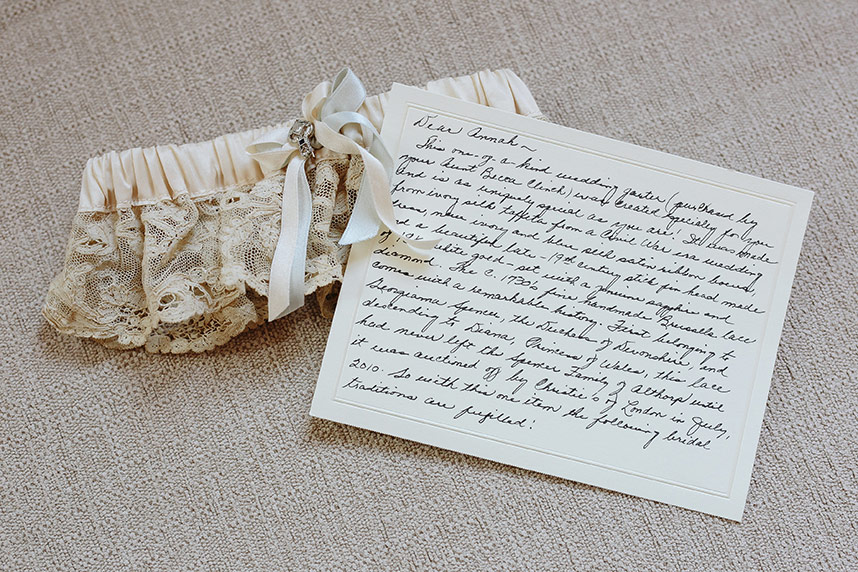 Dear Annah ~
This one-of-a-kind wedding garter (purchased by
your Aunt Becca Clinch) was created specially for you
and is as uniquely special as you are! It was made
from ivory silk taffeta from a Civil War era wedding
dress, new ivory and blue silk satin ribbon bows,
and a beautiful late-19th century stick pin head made
of white gold, set with a genuine sapphire and
diamond. The c. 1730's fine handmade Brussels lace
comes with a remarkable history: First belonging to
Georgianna Spencer, the Duchess of Devonshire, and
descending to Diana, Princess of Wales, this lace
had never left the Spencer Family of Althorp until
it was auctioned off by Christie's of London in July,
2010. So with this one item the following bridal
traditions are fulfilled!